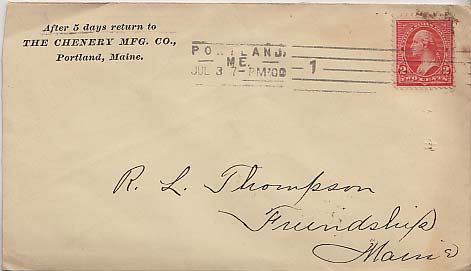 After 5 days return to
THE CHENERY MFG. CO.,
Portland, Maine.
PORTLAND,
ME.
JUL 3 7-PM '00
1
2 2
TWO CENTS
R. L. Thompson
Friendship
Maine